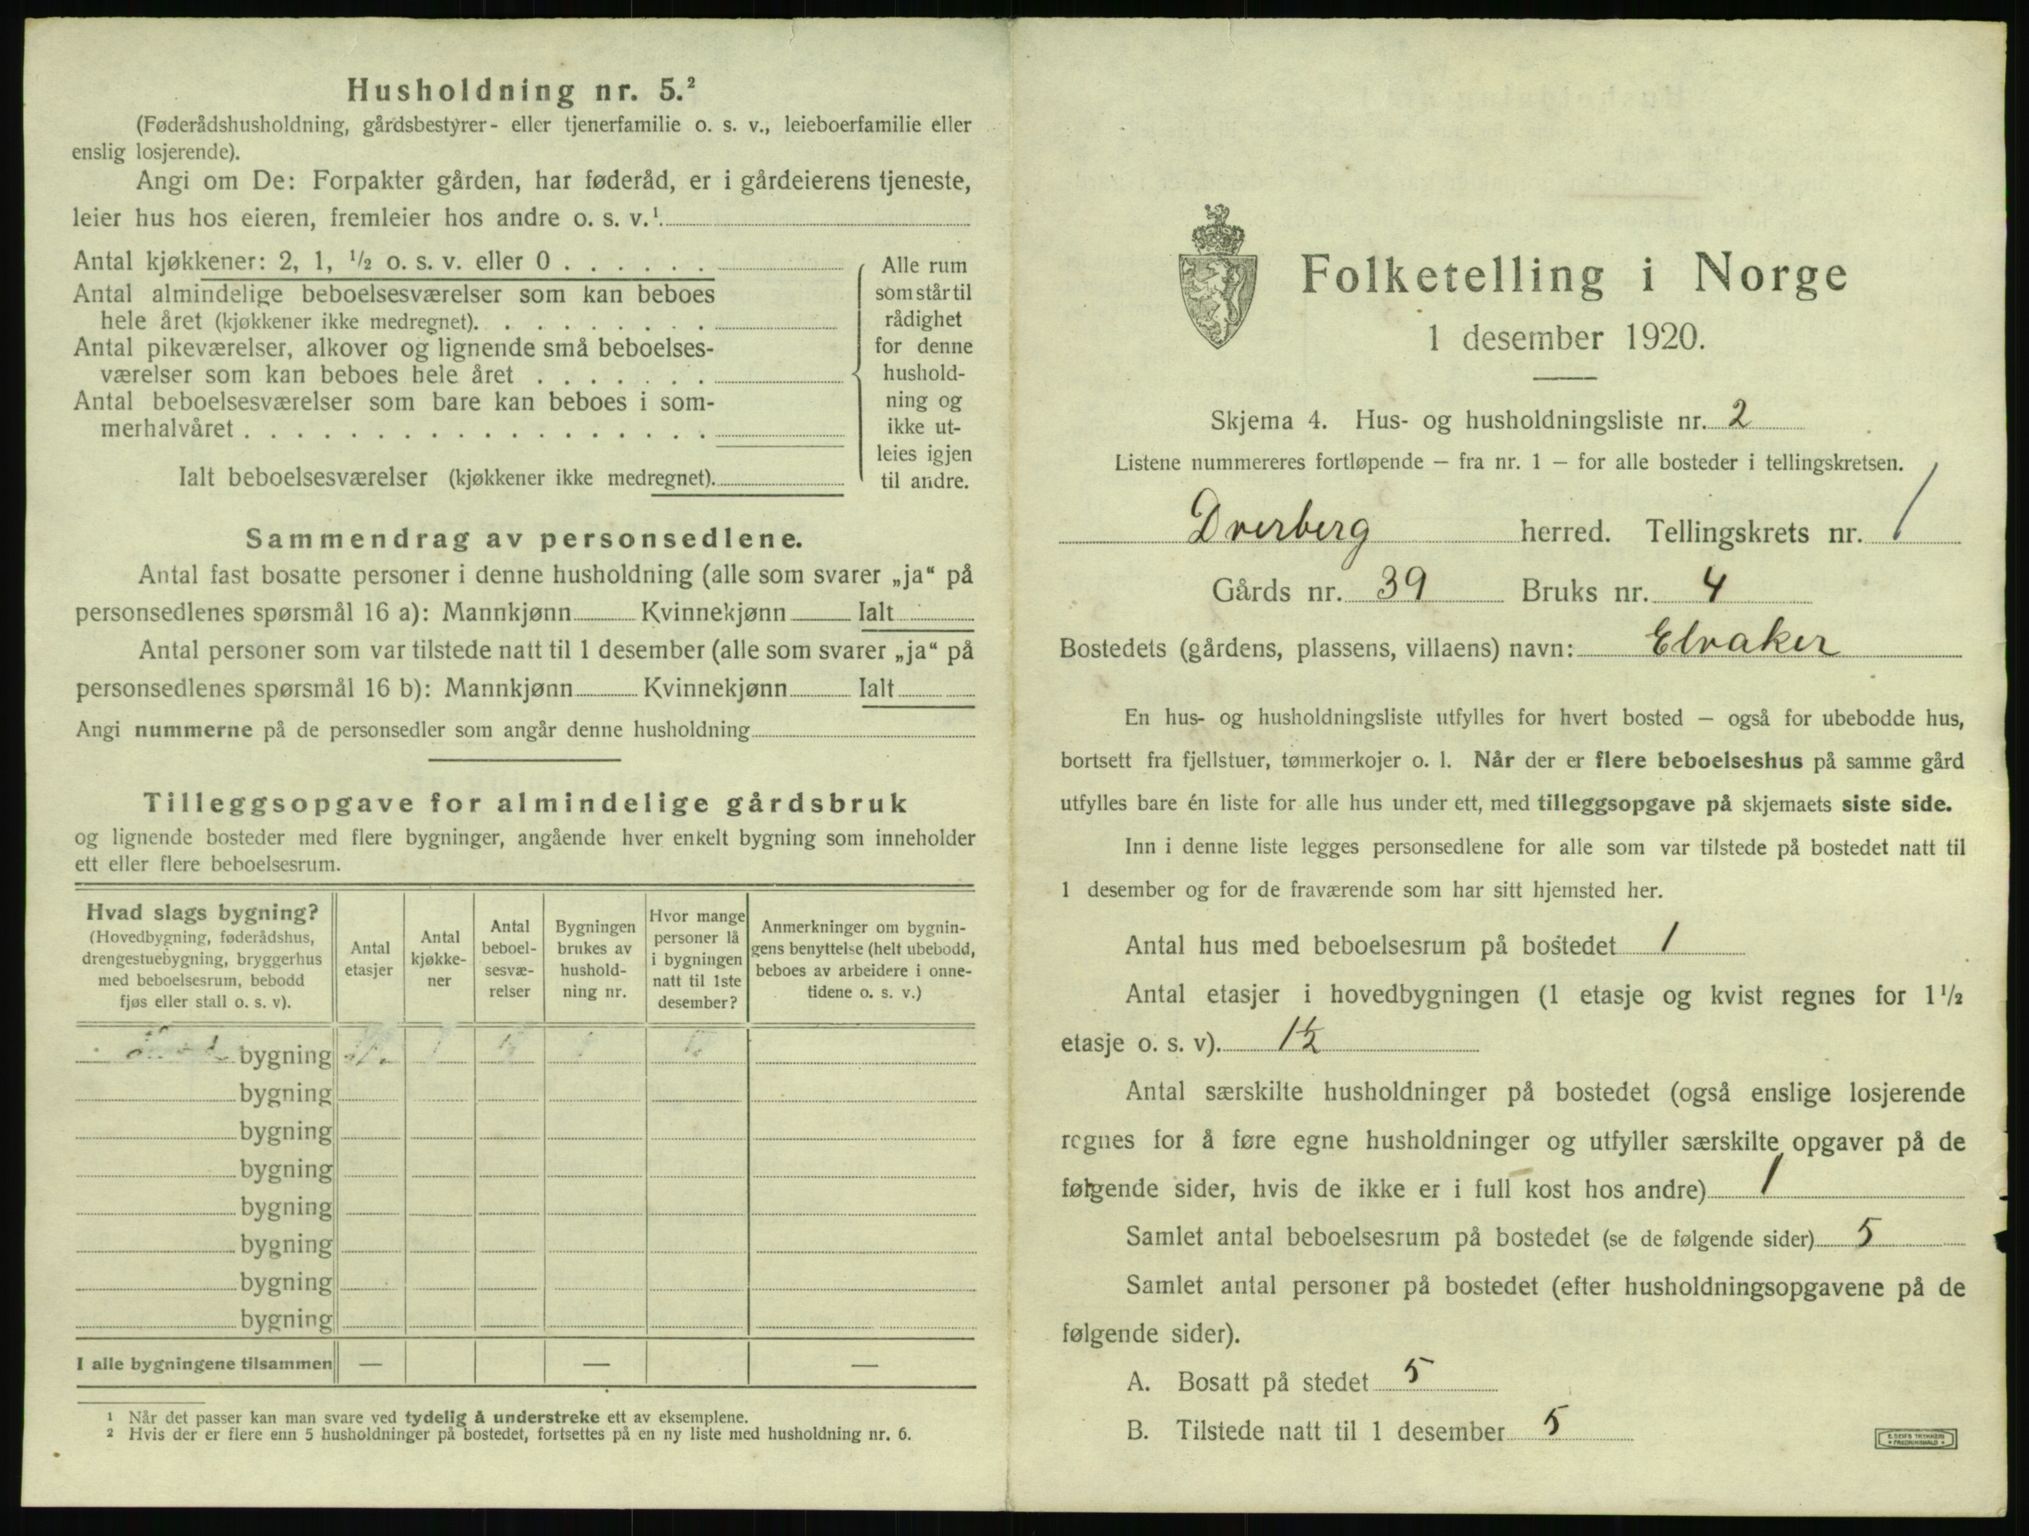 Husholdning nr. 5.²
(Føderådshusholdning, gårdsbestyrer- eller tjenerfamilie o. s. v., leieboerfamilie eller
enslig losjerende).
Angi om De: Forpakter gården, har føderåd, er i gårdeierens tjeneste,
leier hus hos eieren, fremleier hos andre o. s. v.¹
Antal kjøkkener: 2, 1, ½ o. s. v. eller 0 . . . . . .
Antal almindelige beboelsesværelser som kan beboes
hele året (kjøkkener ikke medregnet). . . . . . . . .
Antal pikeværelser, alkover og lignende små beboelses-
værelser som kan beboes hele året . . . . . . .
Antal beboelsesværelser som bare kan beboes i som-
merhalvåret . . . . . . . . . . . . . . . . . .
Ialt beboelsesværelser (kjøkkener ikke medregnet).
Alle rum
som står til
rådighet
for denne
hushold-
ning og
ikke ut-
leies igjen
til andre.
Sammendrag av personsedlene.
Antal fast bosatte personer i denne husholdning (alle som svarer „ja“ på
personsedlenes spørsmål 16 a): Mannkjønn Kvinnekjønn Ialt
Antal personer som var tilstede natt til 1 desember (alle som svarer „ja“ på
personsedlenes spørsmål 16 b): Mannkjønn Kvinnekjønn Ialt
Angi nummerne på de personsedler som angår denne husholdning
Tilleggsopgave for almindelige gårdsbruk
og lignende bosteder med flere bygninger, angående hver enkelt bygning som inneholder
ett eller flere beboelsesrum.
Hvad slags bygning?
(Hovedbygning, føderådshus,
drengestuebygning, bryggerhus
med beboelsesrum, bebodd
fjøs eller stall o. s. v).
Antal
etasjer
Antal
kjøkke-
ner
Antal
beboel-
sesvæ-
relser
Bygningen
brukes av
hushold-
ning nr.
Hvor mange
personer lå
i bygningen
natt til 1ste
desember?
Anmerkninger om bygnin-
gens benyttelse (helt ubebodd,
beboes av arbeidere i onne-
tidene o. s. v.)
bygning
bygning
bygning
bygning
bygning
bygning
bygning
bygning
I alle bygningene tilsammen — — —
¹ Når det passer kan man svare ved tydelig å understreke ett av eksemplene.
² Hvis der er flere enn 5 husholdninger på bostedet, fortsettes på en ny liste med husholdning nr. 6.
Folketelling i Norge
1 desember 1920.
Skjema 4. Hus- og husholdningsliste nr. 2
Listene nummereres fortløpende – fra nr. 1 – for alle bosteder i tellingskretsen.
Dverberg herred. Tellingskrets nr. 1
Gårds nr. 39 Bruks nr. 4
Bostedets (gårdens, plassens, villaens) navn: Elvaker
En hus- og husholdningsliste utfylles for hvert bosted – også for ubebodde hus,
bortsett fra fjellstuer, tømmerkojer o. l. Når der er flere beboelseshus på samme gård
utfylles bare én liste for alle hus under ett, med tilleggsopgave på skjemaets siste side.
Inn i denne liste legges personsedlene for alle som var tilstede på bostedet natt til
1 desember og for de fraværende som har sitt hjemsted her.
Antal hus med beboelsesrum på bostedet 1
Antal etasjer i hovedbygningen (1 etasje og kvist regnes for 1½
etasje o. s. v). 1½
Antal særskilte husholdninger på bostedet (også enslige losjerende
regnes for å føre egne husholdninger og utfyller særskilte opgaver på de
følgende sider, hvis de ikke er i full kost hos andre) 1
Samlet antal beboelsesrum på bostedet (se de følgende sider) 5
Samlet antal personer på bostedet (efter husholdningsopgavene på de
følgende sider).
A. Bosatt på stedet 5
B. Tilstede natt til 1 desember 5